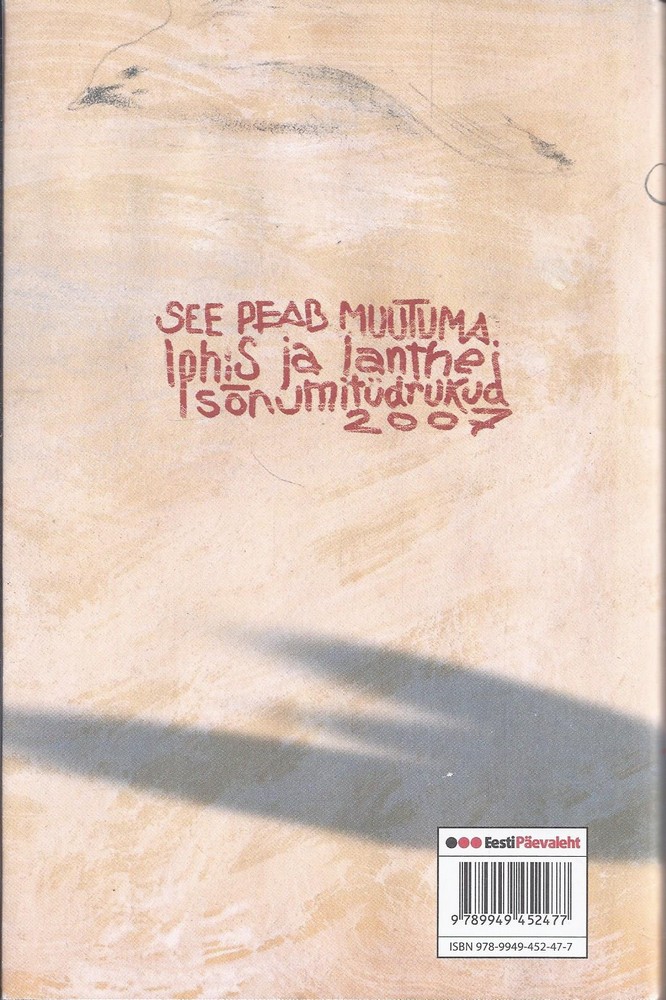 SEE PEAB MUUTUMA
Iphis ja Ianthe
sõnumitüdrukud
2007
EestiPäevaleht
9 789949 452477
ISBN 978-9949-452-47-7